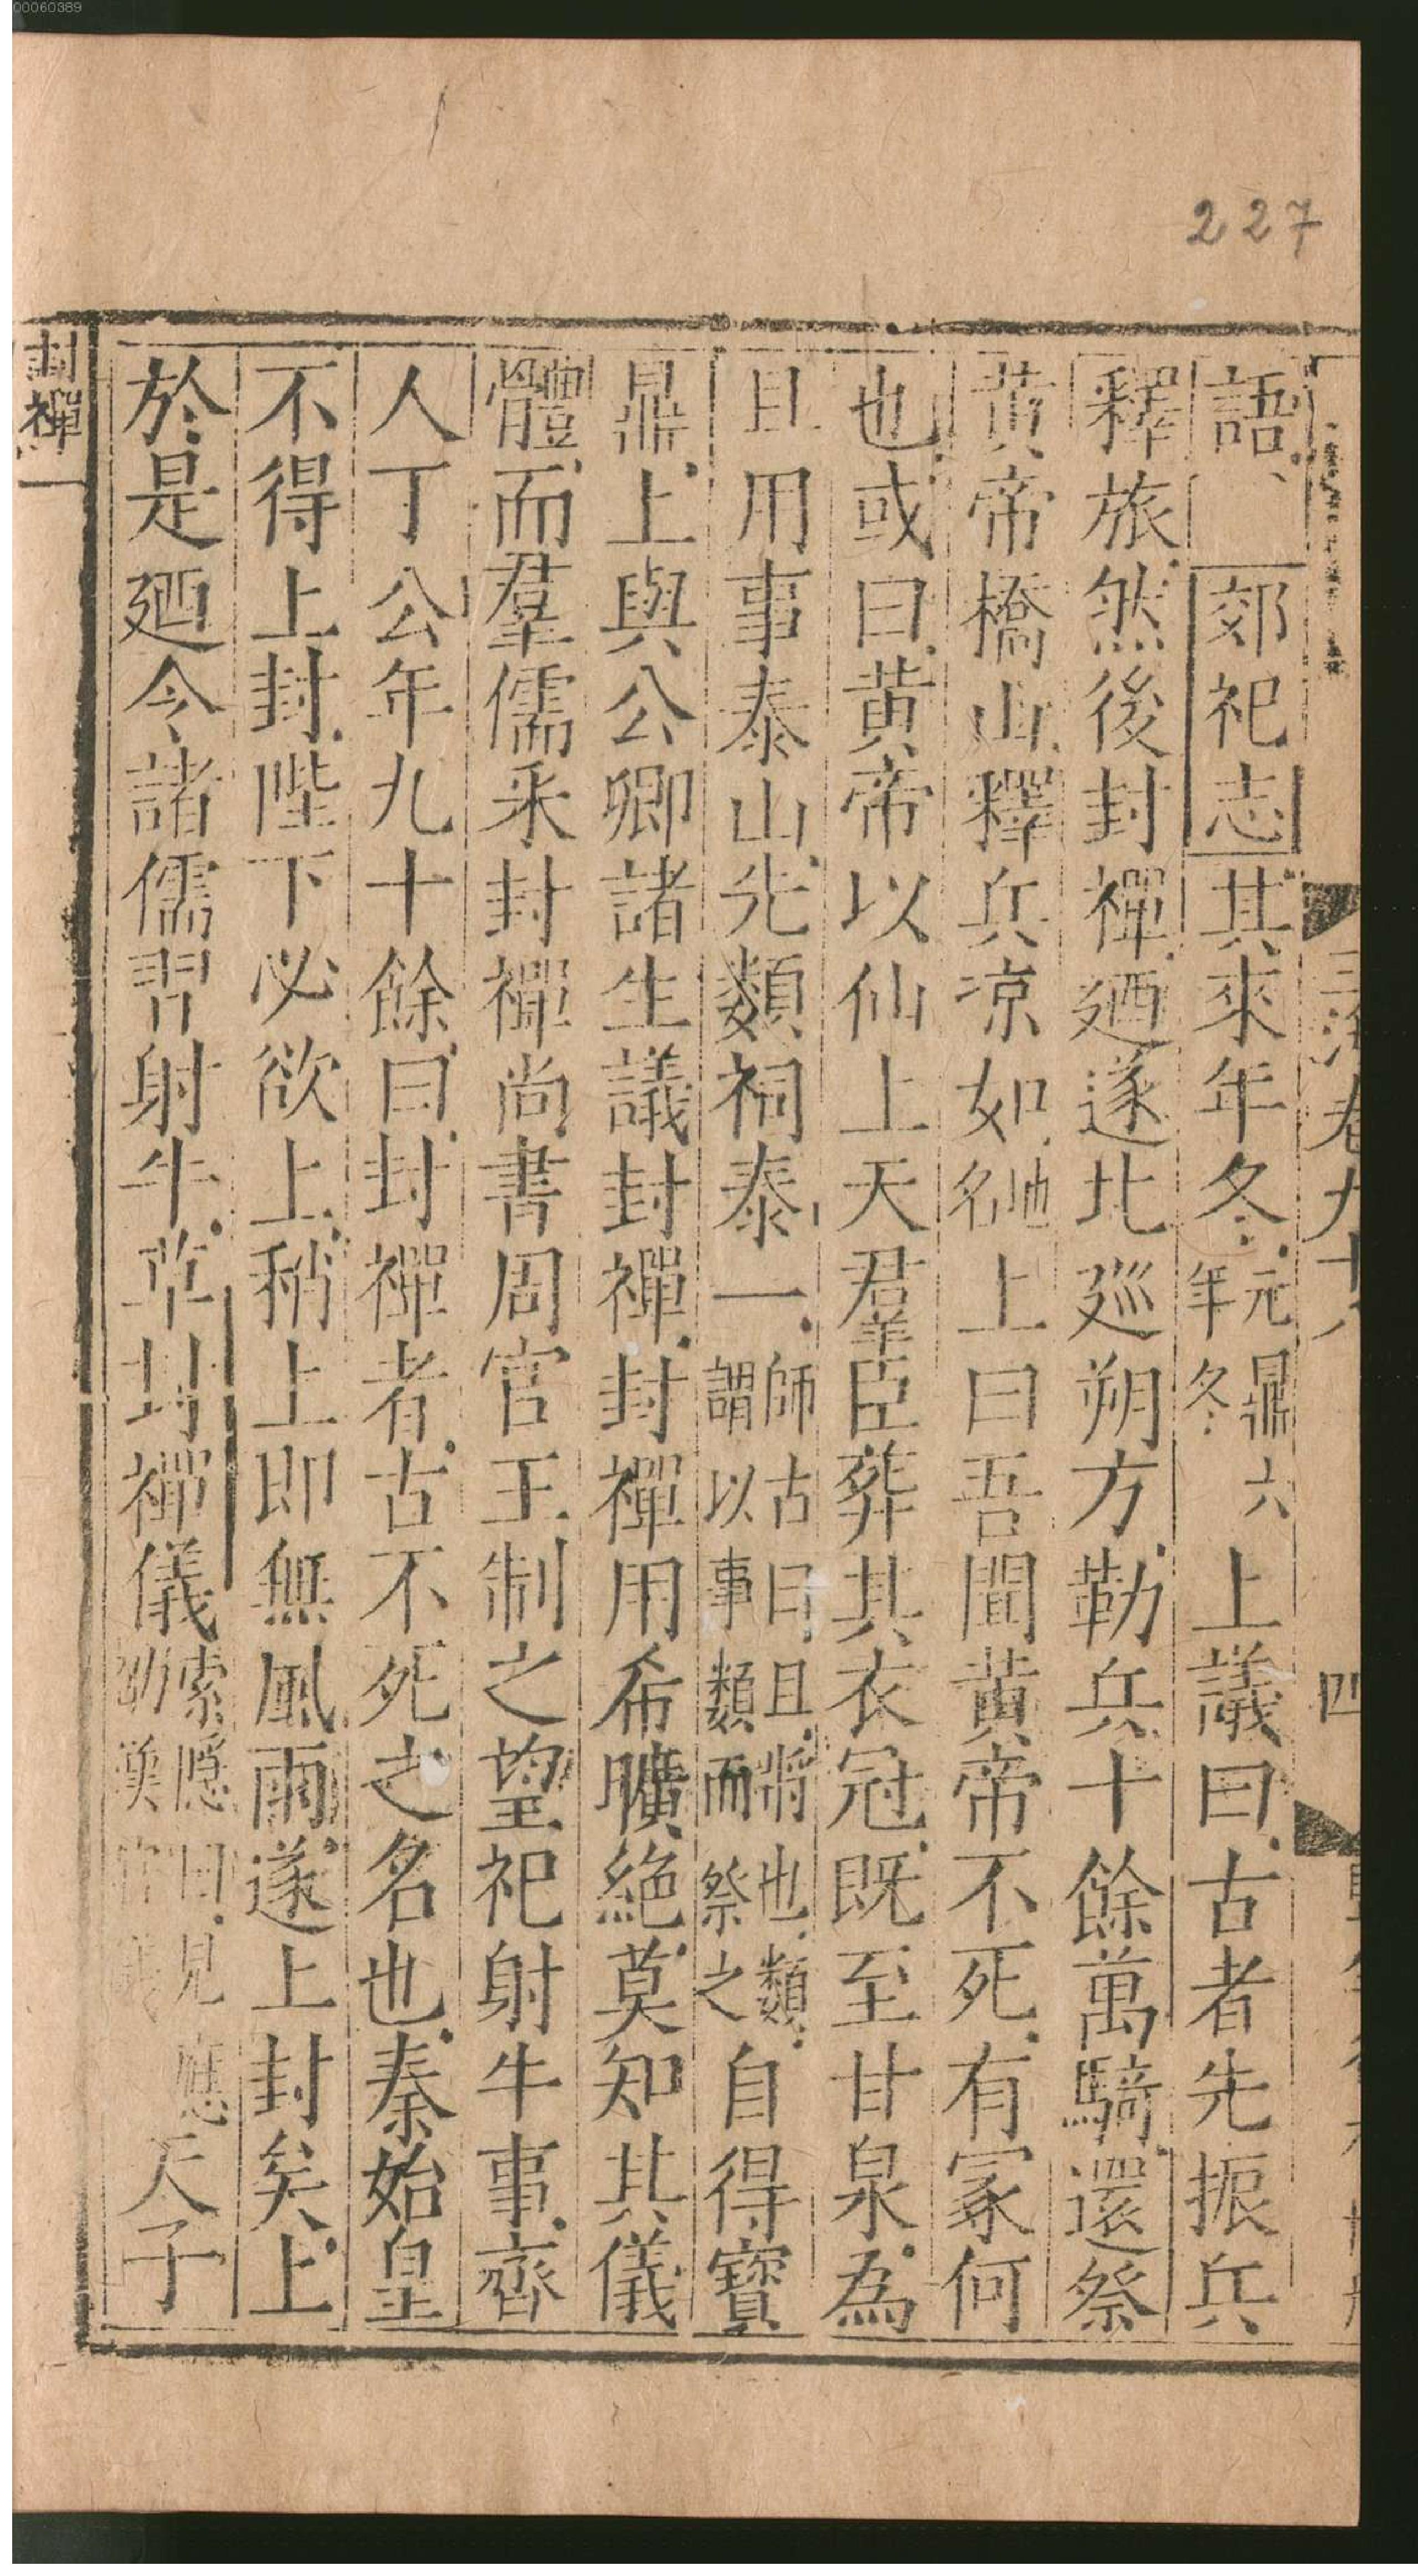 00060389
227
語、郊祀志其來年冬元鼎六年冬上議曰古者先振兵
釋旅然後封禪廼遂北巡朔方勒兵十餘萬騎還祭
黄帝橋山釋兵凉如地名上曰吾聞黄帝不死有冢何
也或曰黄帝以仙上天羣臣葬其衣冠既至甘泉為
且用事泰山先類祠泰一師古曰且將也類謂以事類而祭之自得寶
鼎上與公卿諸生議封禪封禪用希曠絶莫知其儀
體而羣儒釆封禪尚書周官王制之望祀射牛事齊
人丁公年九十餘曰封禪者古不死之名也秦始皇
不得上封陛下必欲上稍上即無風雨遂上封矣上
於是廼令諸儒習射牛草封禪儀索隱曰見應劭漢官儀天子
封禪一
卷九十八
四